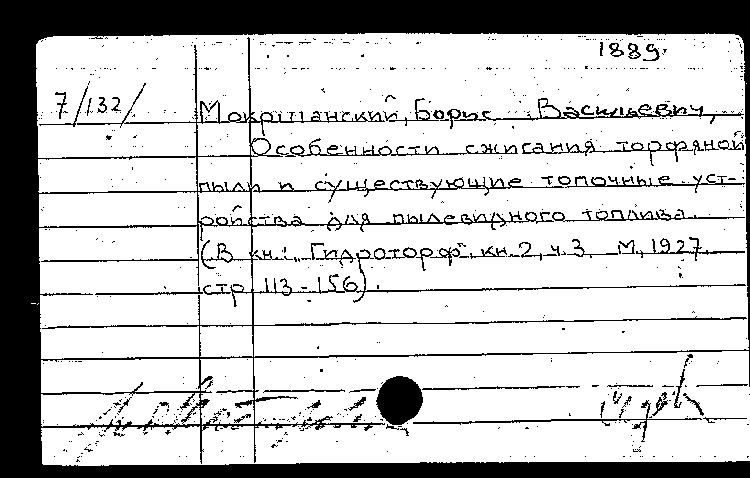 1889.
7/132/
Мокршанский, Борис Васильевич,
Особенности сжигания торфяной
пыли и существующие топочные уст-
ройства для пылевидного топлива.
(В кн.: „Гидроторф", кн. 2, ч. 3. М, 1927.
стр. 113-156).